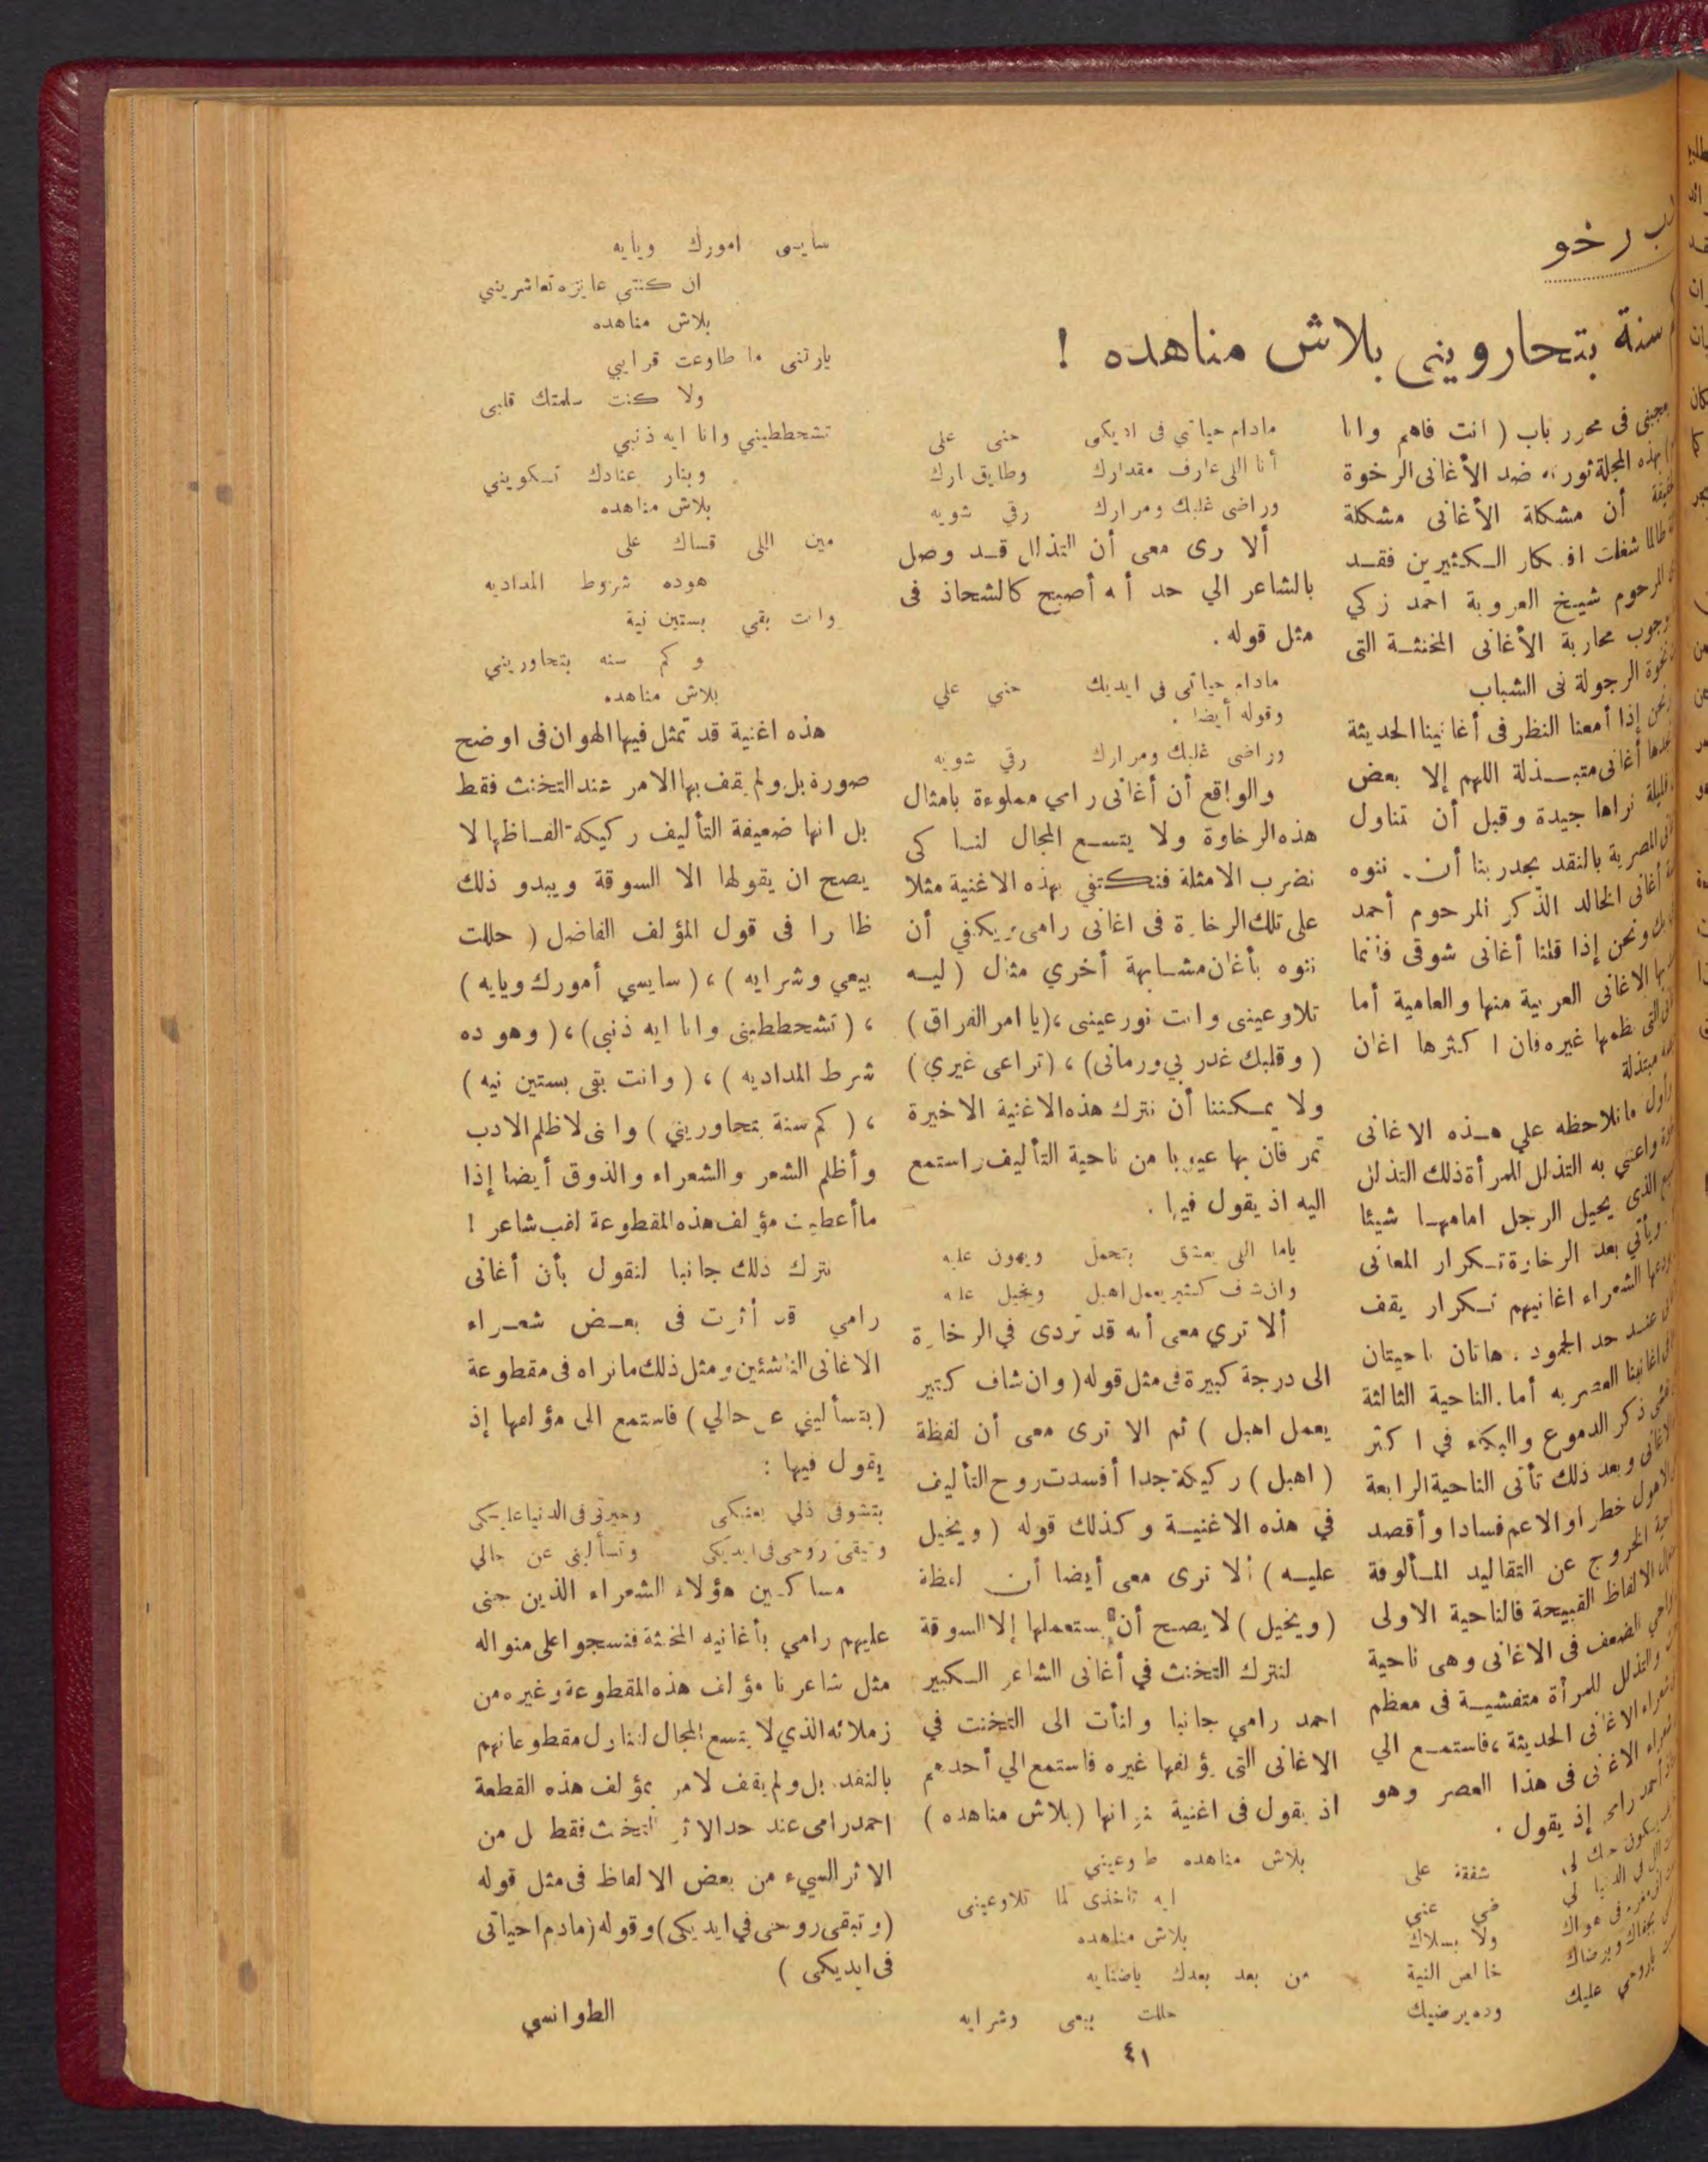 رخو
سنة بتحاوريني بلاش مناهده !
فى محرر باب ( انت فاهم وانا
بهذه المجلة ثورته ضد الأغانى الرخوة
أن مشكلة الأغانى مشكلة
طالما شغلت افكار الكثيرين فقد
المرحوم شيخ العروبة احمد زكي
وجوب محاربة الأغانى المخنثة التى
نخوة الرجولة فى الشباب
ونحن إذا أمعنا النظر فى أغانينا الحديثة
نجدها أغانى متبذلة اللهم إلا بعض
نراها جيدة وقبل أن نتناول
المصرية بالنقد يجدر بنا أن. ننوه
أغانى الخالد الذكر المرحوم أحمد
ونحن إذا قلنا أغانى شوقى فانما
الاغانى العربية منها والعامية أما
التى نظمها غيره فان اكثرها اغان
مبتذلة
وأول مانلاحظه علي هذه الاغانى
واعنى به التذلل للمرأة ذلك التذلل
الذى يحيل الرجل امامها شيئا
ويأتي بعد الرخاوة تكرار المعانى
الشعراء اغانيهم تكرار يقف
عند حد الجمود . هاتان ناحيتان
اغانينا العصريه أما. الناحية الثالثة
ذكر الدموع والبكاء في اكثر
وبعد ذلك تأتى الناحية الرابعة
خطرا والاعم فسادا وأقصد
الخروج عن التقاليد المألوفة
الالفاظ القبيحة فالناحية الاولى
الضعف فى الاغانى وهى ناحية
والتذلل للمرأة متفشية فى معظم
الاغانى الحديثة ، فاستمع الي
الاغانى فى هذا العصر وهو
أحمد رامى إذ يقول .
شفقة على
فى الدنيا لي ضي عني
فى هواك ولا بسلاك
وبرضاك خالص النية
ياروحي عليك وده يرضيك
مادام حياتي فى اديكى حنى على
أنا اللى عارف مقدارك وطايق نارك
وراضى غلبك ومرارك رقي شويه
ألا رى معى أن التذلل قد وصل
بالشاعر الي حد أنه أصبح كالشحاذ فى
مثل قوله .
مادام حياتى في ايديك حني علي
وقوله أيضا .
وراضى غلبك ومرارك رقي شويه
والواقع أن أغانى رامي مملوءة بامثال
هذه الرخاوة ولا يتسع المجال لنا كى
نضرب الامثلة فنكتفي بهذه الاغنية مثلا
على تلك الرخاوة فى اغانى رامى ويكفي أن
ننوه بأغان مشابهة أخري مثال ( ليه
تلاوعينى وانت نور عينى ، ( يا امر الفراق )
( وقلبك غدر بي ورمانى ) ، ( تراعى غيري )
ولا يمكننا أن نترك هذه الاغنية الاخيرة
تمر فان بها عيوبا من ناحية التأليف واستمع
اليه اذ يقول فيها .
ياما اللى يعشق يتحمل ويهون عليه
وان شاف كثير يعمل اهبل ويخيل عليه
ألا تري معى أنه قد تردى في الرخاوة
الى درجة كبيرة فى مثل قوله ( وان شاف كتير
يعمل اهبل ) ثم الا ترى معى أن لفظة
( اهبل ) ركيكة جدا أفسدت روح التأليف
في هذه الاغنية وكذلك قوله ( ويخيل
عليه ) ألا ترى معى أيضا أن لفظة
( ويخيل ) لا يصح أن يستعملها إلا السوقة
لنترك التخنث في أغانى الشاعر الكبير
احمد رامي جانبا ولنأت الى التخنث في
الاغانى التى يؤلفها غيره فاستمع الي أحدهم
اذ يقول فى اغنية عنوانها ( بلاش مناهده )
بلاش مناهده طاوعيني
ايه تاخذى لما تلاوعينى
بلاش مناهده
من بعد بعدك ياضنايه
حللت بيعى وشرايه
سايسى امورك ويايه
ان كنتي عايزه تعاشرينى
بلاش مناهده
ياريتنى ما طاوعت قرايبي
ولا كنت سلمتك قلبى
تشحططيني وانا ايه ذنبي
وبنار عنادك تكويني
بلاش مناهده
مين اللى قساك على
هوده شروط المداديه
وانت بقي بستين نية
وكم سنه بتحاوريني
بلاش مناهده
هذه اغنية قد تمثل فيها الهوان فى اوضح
صورة بل ولم يقف بها الامر عند التخنث فقط
بل انها ضعيفة التأليف ركيكة الفاظها لا
يصح ان يقولها الا السوقة ويبدو ذلك
ظاهرا فى قول المؤلف الفاضل ( حللت
بيعي وشرايه ) ، ( سايسي أمورك ويايه )
، ( تشحططينى وانا ايه ذنبى ) ، ( وهو ده
شرط المداديه ) ، ( وانت بقى بستين نيه )
، ( كم سنة بتحاوريني ) وانى لاظلم الادب
وأظلم الشعر والشعراء والذوق أيضا إذا
ماأعطيت مؤلف هذه المقطوعة لقب شاعر !
نترك ذلك جانبا لنقول بأن أغانى
رامي قد أثرت فى بعض شعراء
الاغانى الناشئين ومثل ذلك مانراه فى مقطوعة
( بتسأليني عن حالي ) فاستمع الى مؤلفها إذ
يقول فيها :
بتشوفى ذلي بعينكى وحيرتى فى الدنيا عليكى
وتبقى روحى فى ايديكى وتسأليني عن حالي
مساكين هؤلاء الشعراء الذين جنى
عليهم رامي بأغانيه المخنثة فنسجوا على منواله
مثل شاعرنا مؤلف هذه المقطوعة وغيره من
زملائه الذي لا يتسع المجال لتناول مقطوعاتهم
بالنقد. بل ولم يقف لامر بمؤلف هذه القطعة
احمد رامى عند حد الاثر التخنث فقط ل من
الاثر السيء من بعض الالفاظ فى مثل قوله
( وتبقى روحى في ايديكى ) وقوله ( مادم احياتى
فى ايديكى )
الطوانسي
٤١